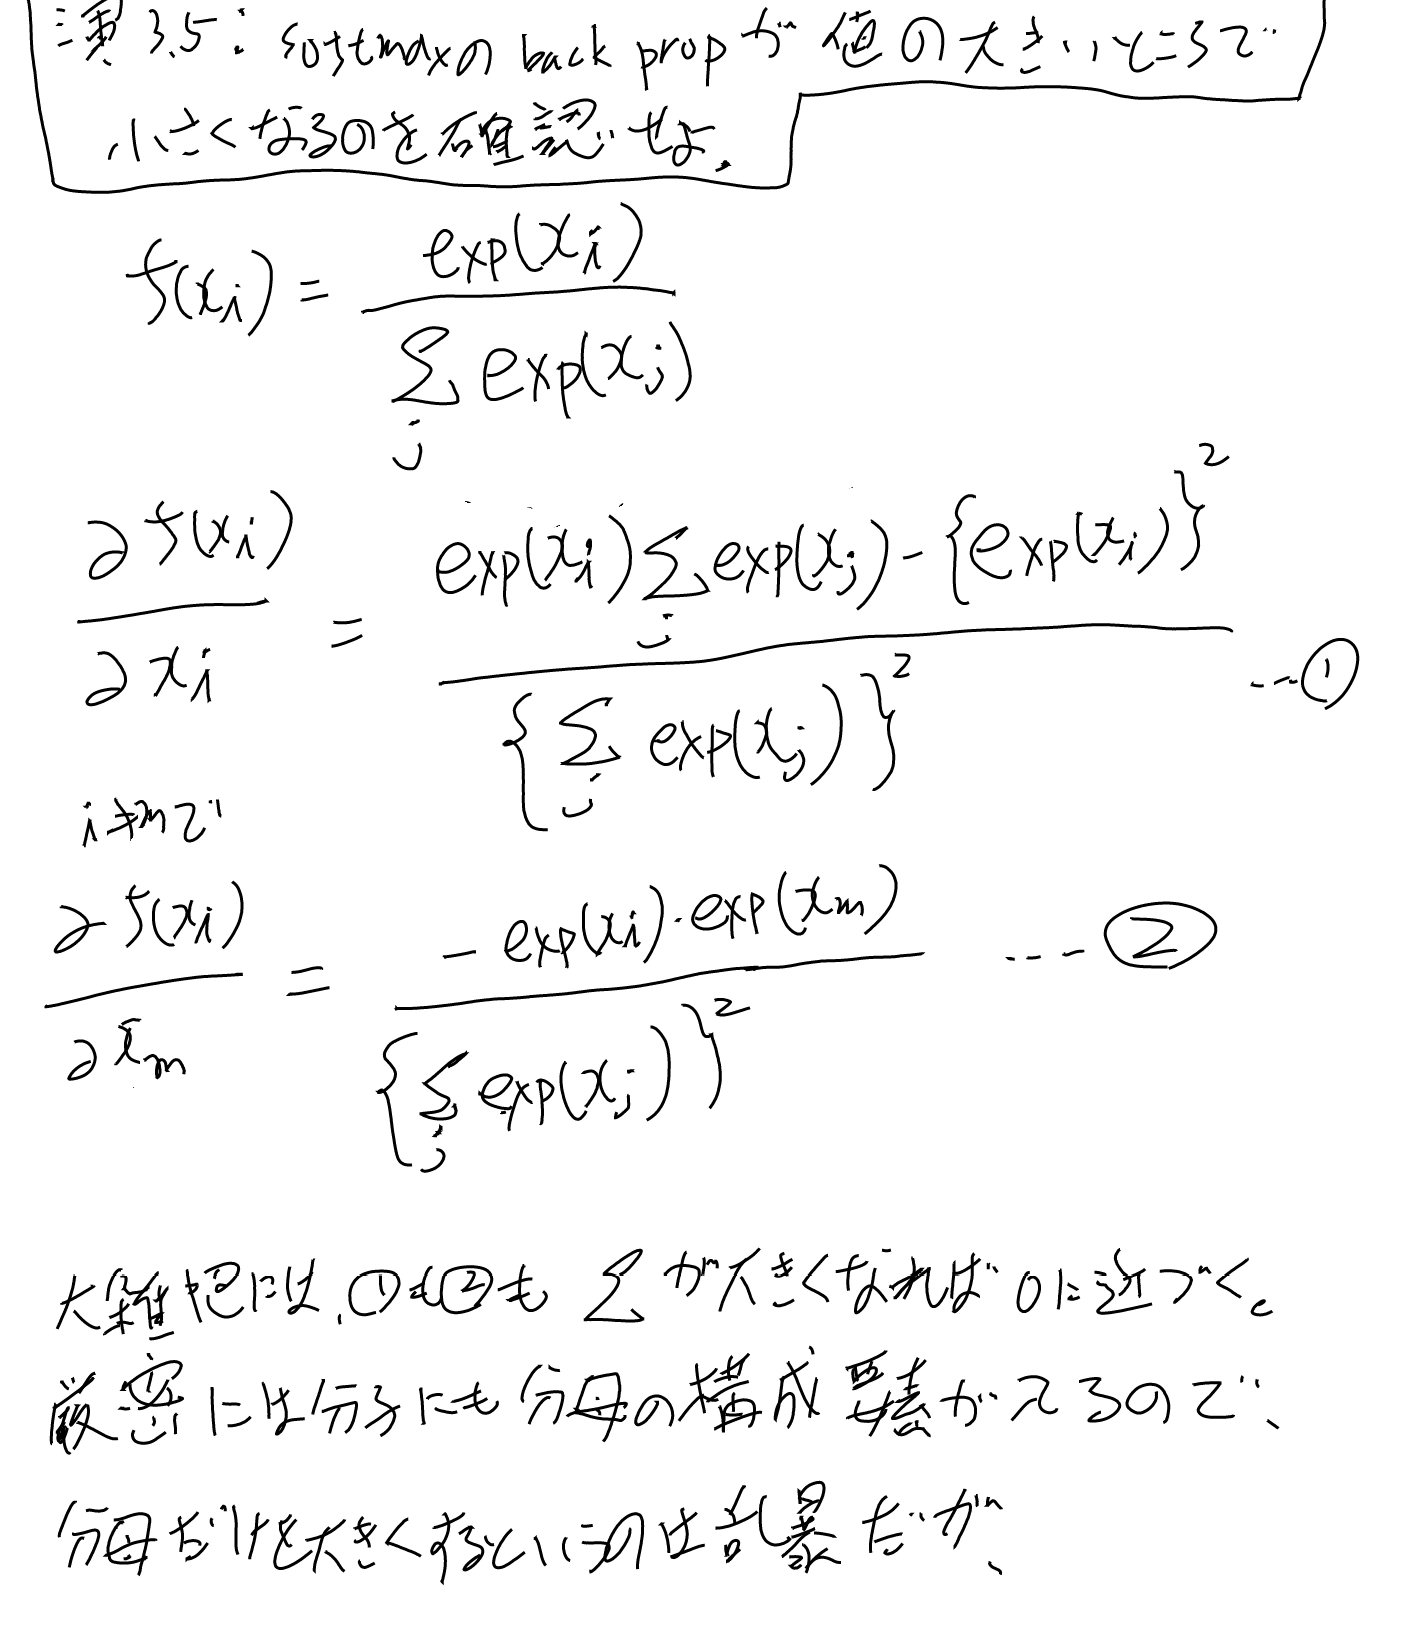 演3.5: softmaxのback propが値の大きいところで
小さくなるのを確認せよ.
f(xi) = exp(xi) / Σj exp(xj)
∂f(xi)/∂xi = exp(xi)Σj exp(xj) - {exp(xi)}² / {Σj exp(xj)}² ...①
i≠mで
∂f(xi)/∂xm = -exp(xi)・exp(xm) / {Σj exp(xj)}² ....②
大雑把には、①も②もΣが大きくなれば0に近づく。
厳密には分子にも分母の構成要素が入るので、
分母だけを大きくするというのは乱暴だが、